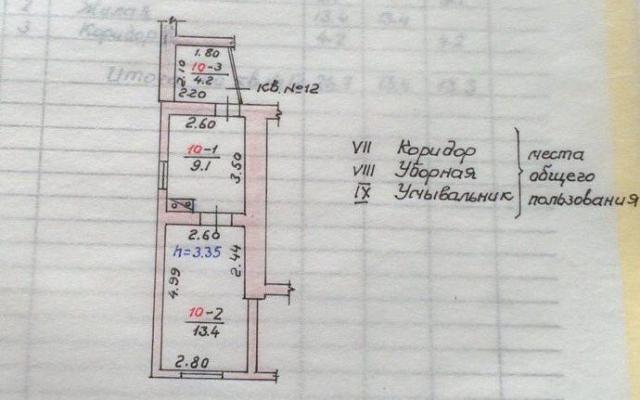 2 Жилая 13.4 13.4
3 Коридор 4.2 4.2
Итого
1.80
10-3
4.2
2.10
2.20
кв. №12
2.60
10-1
9.1
3.50
2.60
h=3.35
2.44
4.99
10-2
13.4
2.80
VII Коридор
VIII Уборная
IX Умывальник
места
общего
пользования